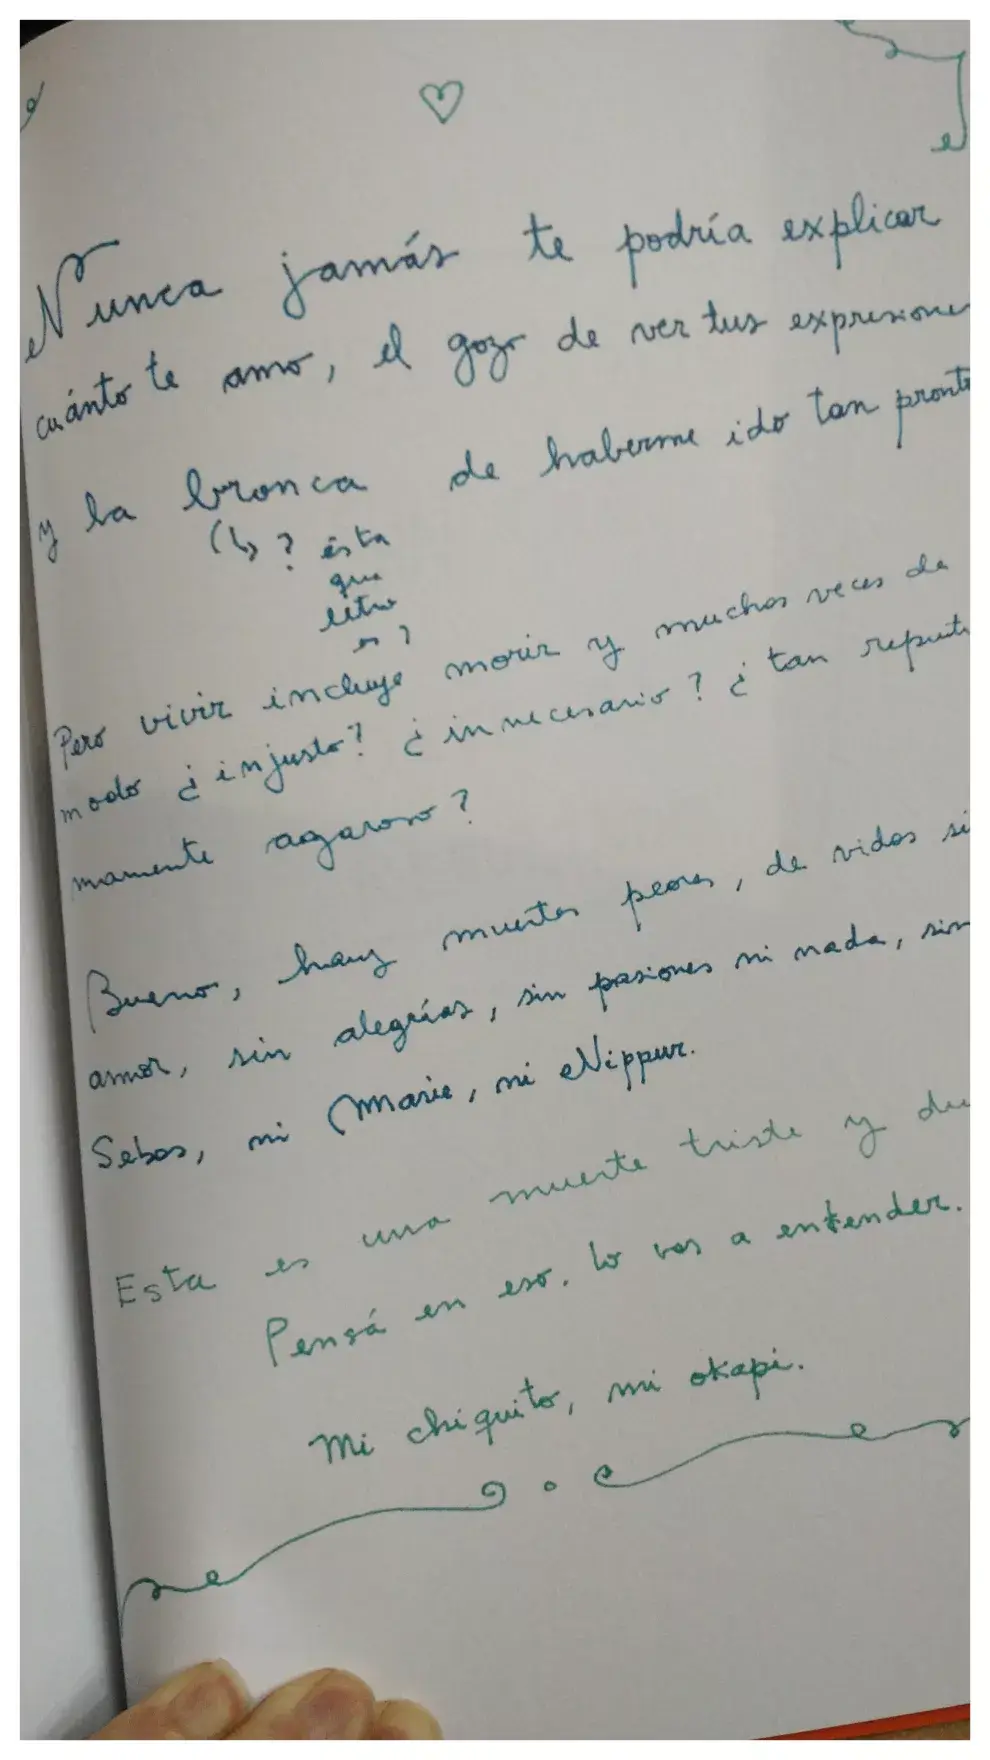 Nunca jamás te podría explicar
cuánto te amo, el gozo de ver tus expresione
y la bronca de haberme ido tan pronto
(↳ ? ésta
que
letra
es ?
Pero vivir incluye morir y muchas veces de
modo ¿injusto? ¿innecesario? ¿tan repenti
mamente
Bueno, hay muertes peores, de vidas si
amor, sin alegrías, sin pasiones ni nada, sin
Sebas, ni Marie, ni Nippur.
Esta es una muerte triste y du
Pensá en eso. lo vas a entender.
Mi chiquito, mi okapi.